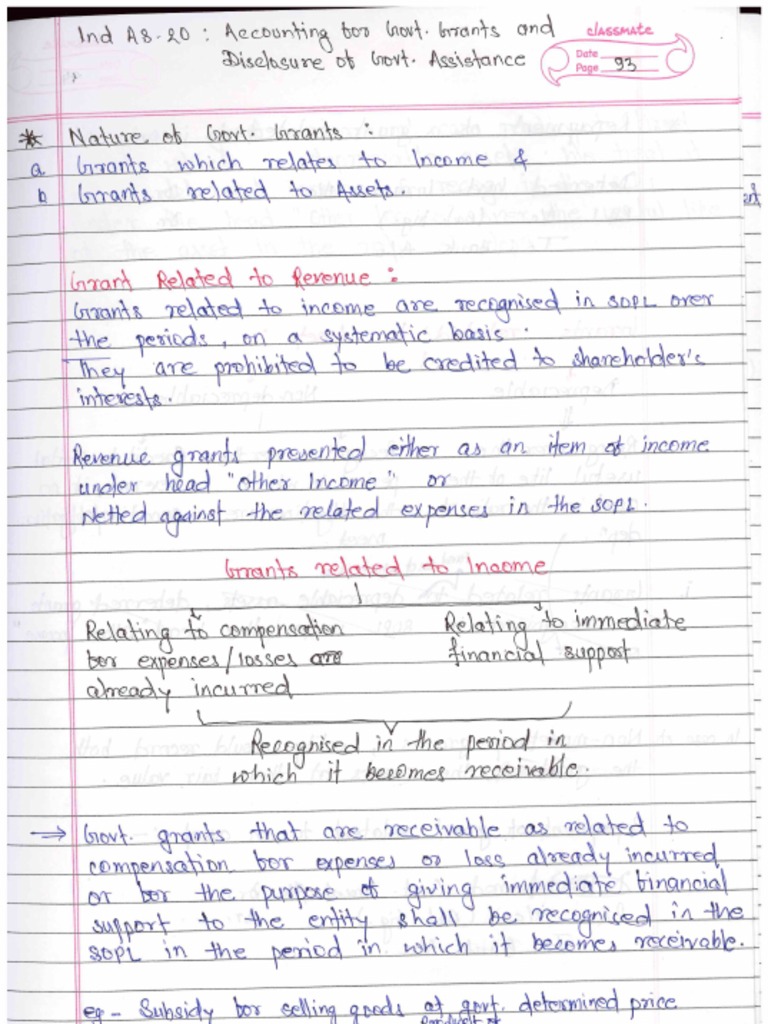 Ind AS-20 : Accounting for Govt. Grants and
Disclosure of Govt. Assistance
classmate
Date
Page 93
* Nature of Govt. Grants :
a Grants which relates to Income &
b Grants related to Assets.
Grant Related to Revenue :
Grants related to income are recognised in SOPL over
the periods, on a systematic basis.
They are prohibited to be credited to shareholder's
interests.
Revenue grants presented either as an item of income
under head "other Income" or
Netted against the related expenses in the SOPL.
Grants related to Income
Relating to compensation
for expenses/losses are
already incurred
Relating to immediate
financial support
Recognised in the period in
which it becomes receivable.
→ Govt. grants that are receivable as related to
compensation for expenses or loss already incurred
or for the purpose of giving immediate financial
support to the entity shall be recognised in the
SOPL in the period in which it becomes receivable.
eg - Subsidy for selling goods at govt. determined price